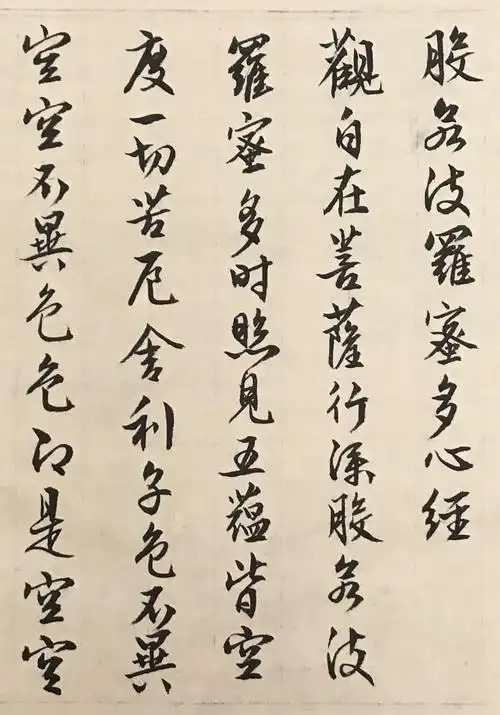 般若波羅蜜多心經
觀自在菩薩行深般若波
羅蜜多時照見五蘊皆空
度一切苦厄舍利子色不異
空空不異色色即是空空